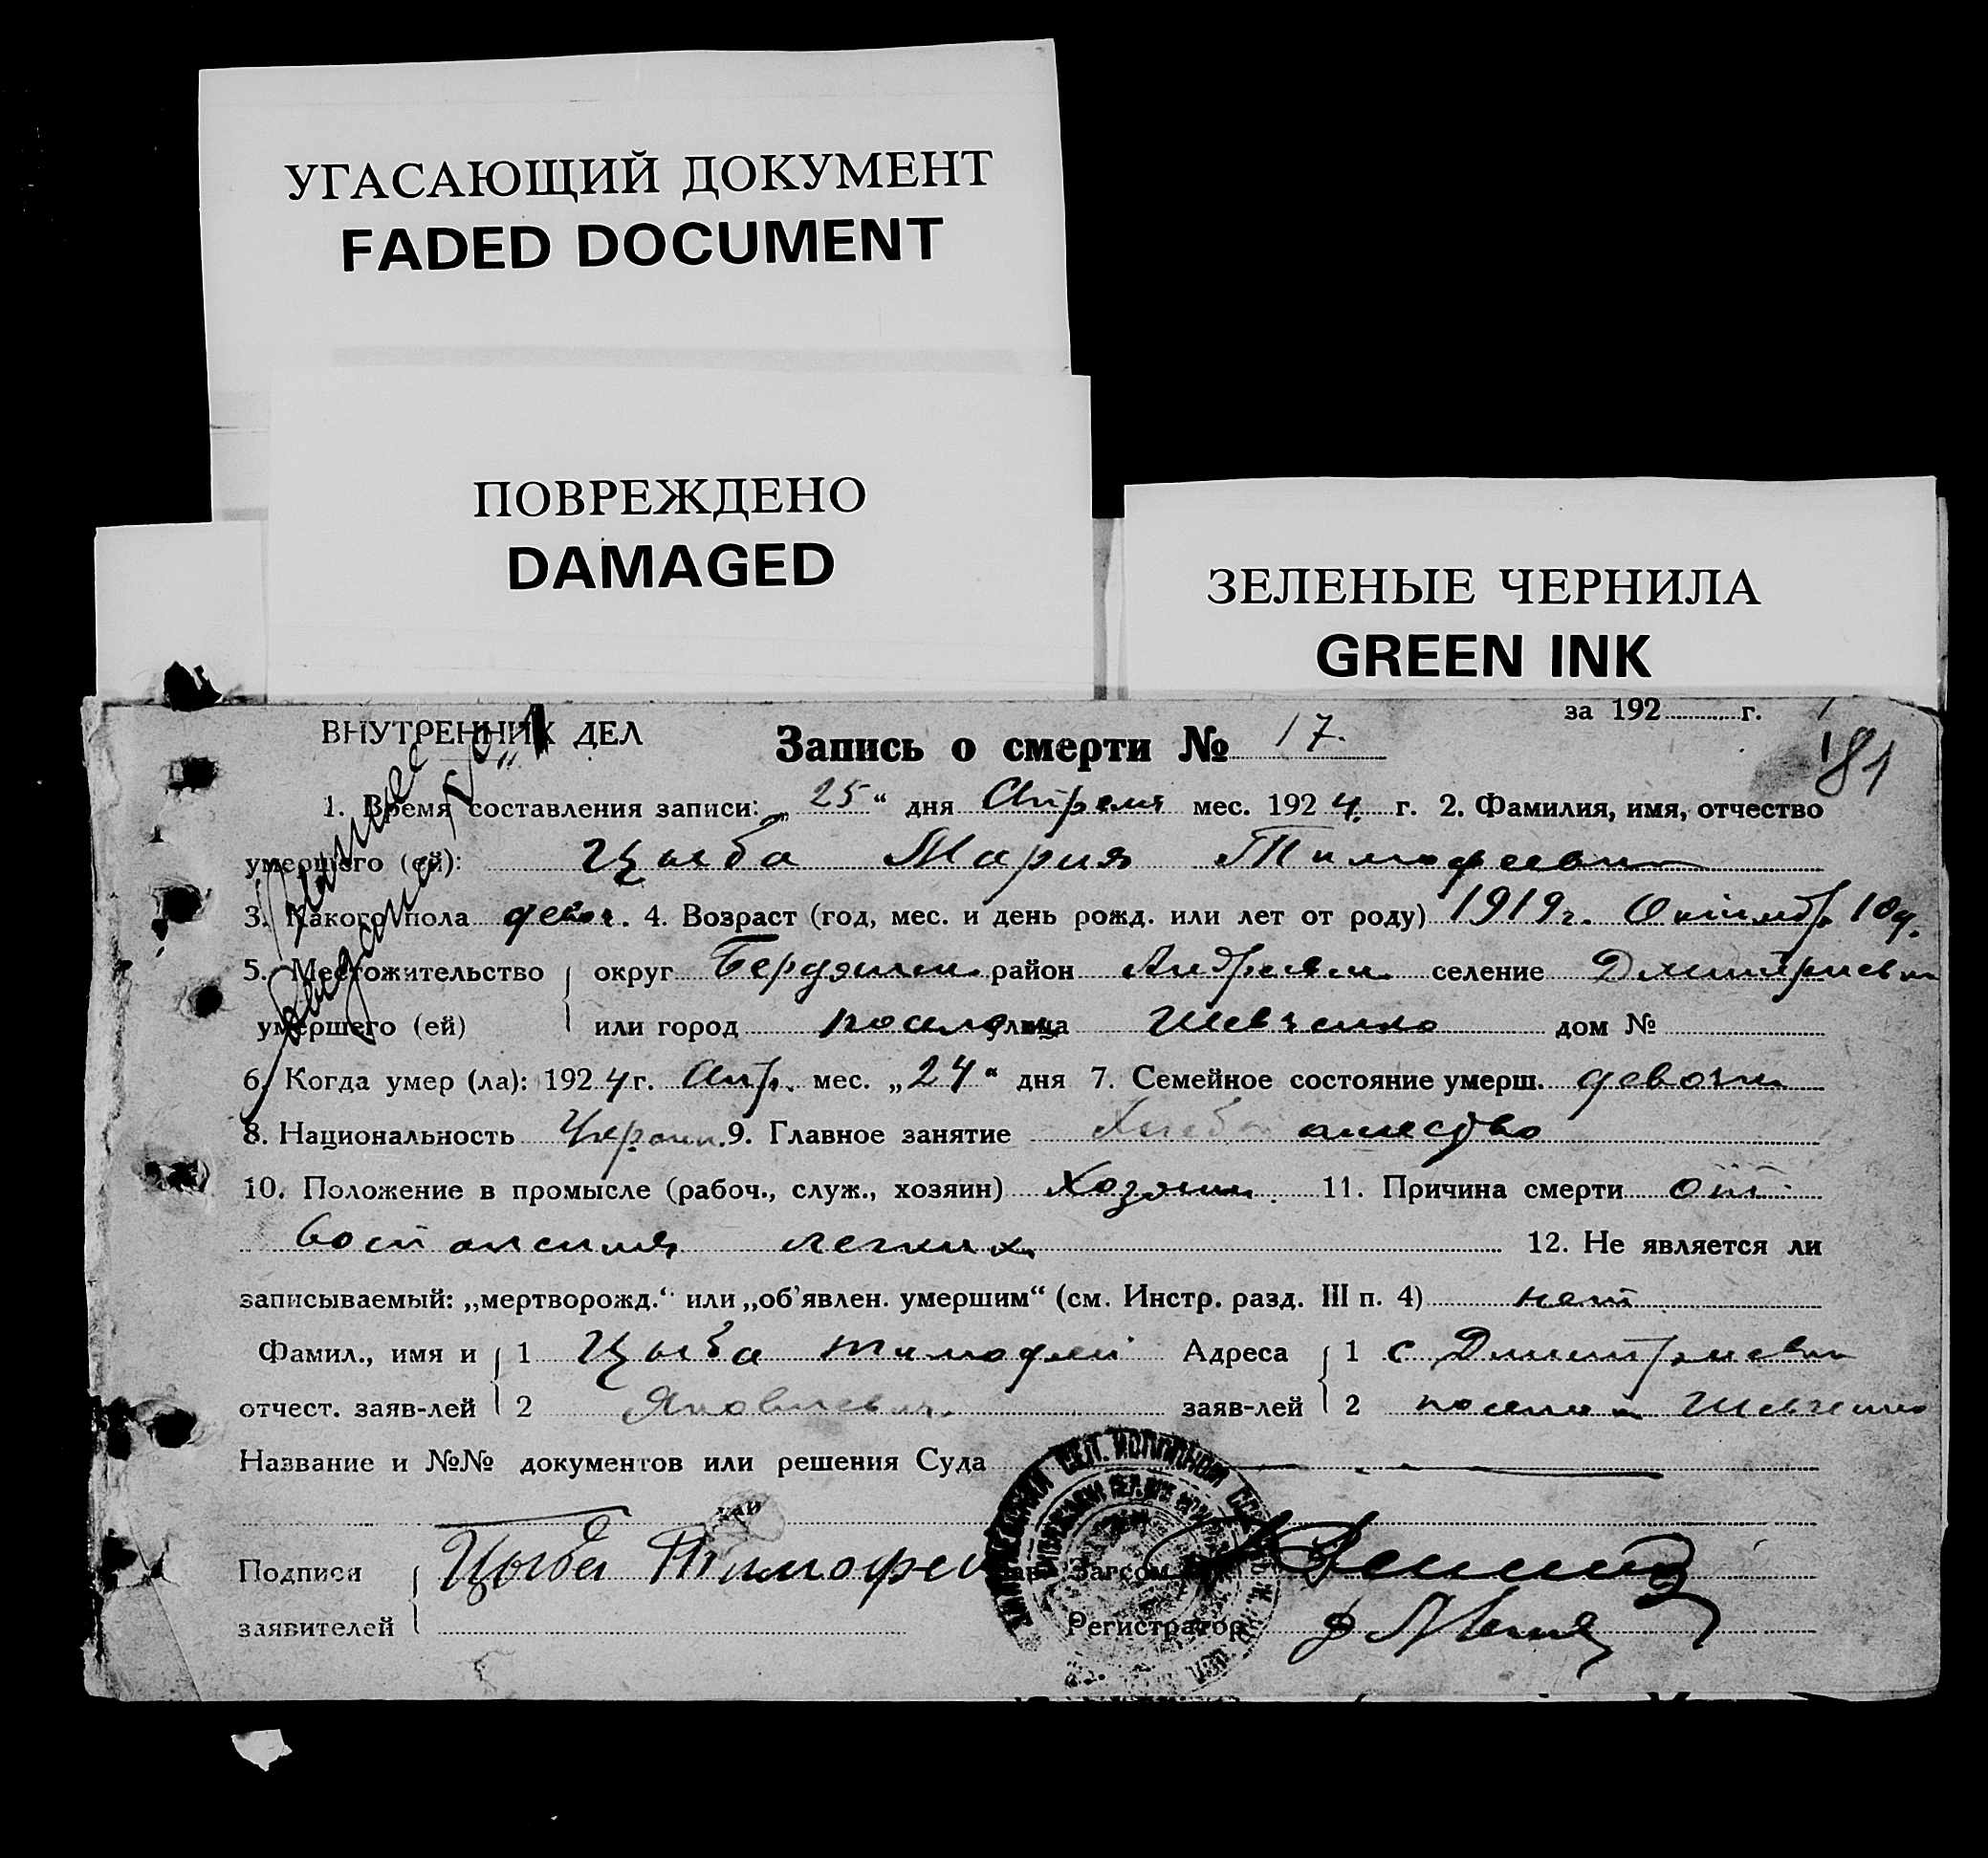 УГАСАЮЩИЙ ДОКУМЕНТ
FADED DOCUMENT
ПОВРЕЖДЕНО
DAMAGED
ЗЕЛЕНЫЕ ЧЕРНИЛА
GREEN INK
за 192 г.
ВНУТРЕННИХ ДЕЛ
Запись о смерти № 17.
81
1. Время составления записи: „25“ дня Апреля мес. 1924 г. 2. Фамилия, имя, отчество
умершего (ей): Цыба Мария Тимофеевн
3. Какого пола девоч. 4. Возраст (год, мес. и день рожд. или лет от роду) 1919г. Октября 10д.
5. Местожительство округ Бердянск район Андреев селение Дмитриевк
умершего (ей) или город поселок улица Шевченко дом №
6. Когда умер (ла): 1924г. Апр. мес. „24“ дня 7. Семейное состояние умерш. девочк
8. Национальность Украин. 9. Главное занятие Хлебопашество
10. Положение в промысле (рабоч., служ., хозяин) Хозяин. 11. Причина смерти от
воспаления легких 12. Не является ли
записываемый: „мертворожд.“ или „об'явлен. умершим“ (см. Инстр. разд. III п. 4) нет
Фамил., имя и 1 Цыба Тимофей Адреса 1 с Дмитриевк
отчест. заяв-лей 2 Яковлевич. заяв-лей 2 поселок Шевченко
Название и №№ документов или решения Суда
Подписи Цыба Тимофей Загсом
заявителей Регистратор